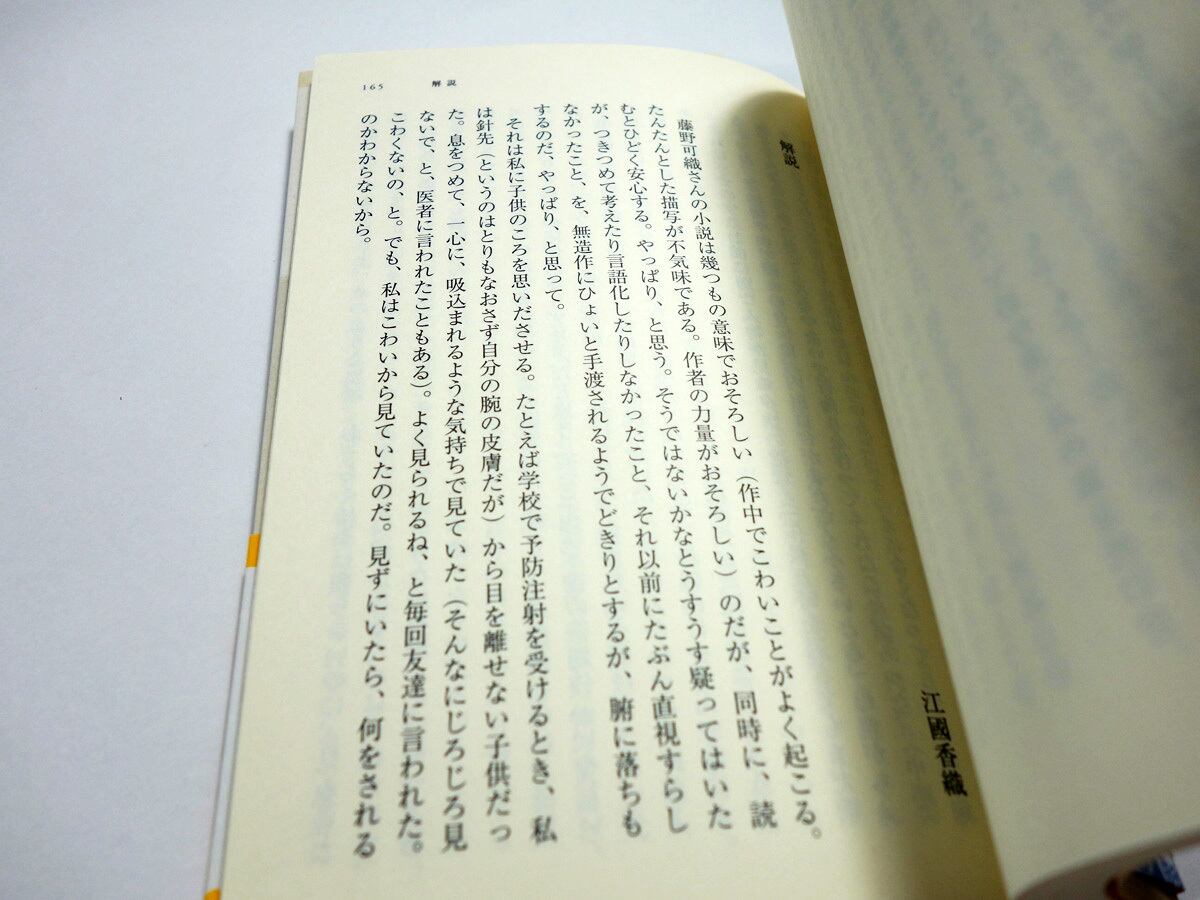 165
解説
解説
江國香織
藤野可織さんの小説は幾つもの意味でおそろしい（作中でこわいことがよく起こる。
たんたんとした描写が不気味である。作者の力量がおそろしい）のだが、同時に、読
むとひどく安心する。やっぱり、と思う。そうではないかなとうすうす疑ってはいた
が、つきつめて考えたり言語化したりしなかったこと、それ以前にたぶん直視すらし
なかったこと、を、無造作にひょいと手渡されるようでどきりとするが、腑に落ちも
するのだ、やっぱり、と思って。
それは私に子供のころを思いださせる。たとえば学校で予防注射を受けるとき、私
は針先（というのはとりもなおさず自分の腕の皮膚だが）から目を離せない子供だっ
た。息をつめて、一心に、吸込まれるような気持ちで見ていた（そんなにじろじろ見
ないで、と、医者に言われたこともある）。よく見られるね、と毎回友達に言われた。
こわくないの、と。でも、私はこわいから見ていたのだ。見ずにいたら、何をされる
のかわからないから。